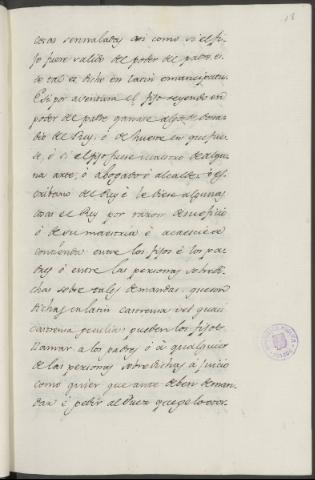 18
cosas sennaladas así como si el fi-
jo fuere salido del poder del padre, et
de tal es dicho en latin emancipatus.
E si por aventura el fijo seyendo en
poder del padre ganase algo de sorda-
dio del Rey, ó de hueste en que fue-
se, ó si el fijo fuese maestro de algu-
na arte, ó abogado ó alcalde, ó es-
cribano del Rey é le diese algunas
cosas el Rey por razon de su oficio
ó de su maestria é acaesciese
contienda entre los fijos é los pa-
dres ó entre las personas sobredi-
chas sobre tales demandas que son
dichas en latin castrensia vel quasi
castrensia peculia, pueden los fijos
llamar a los padres ó á qualquier
de las personas sobredichas á juicio
como quier que ante deben deman-
dar é pedir al Juez que ge lo otor-